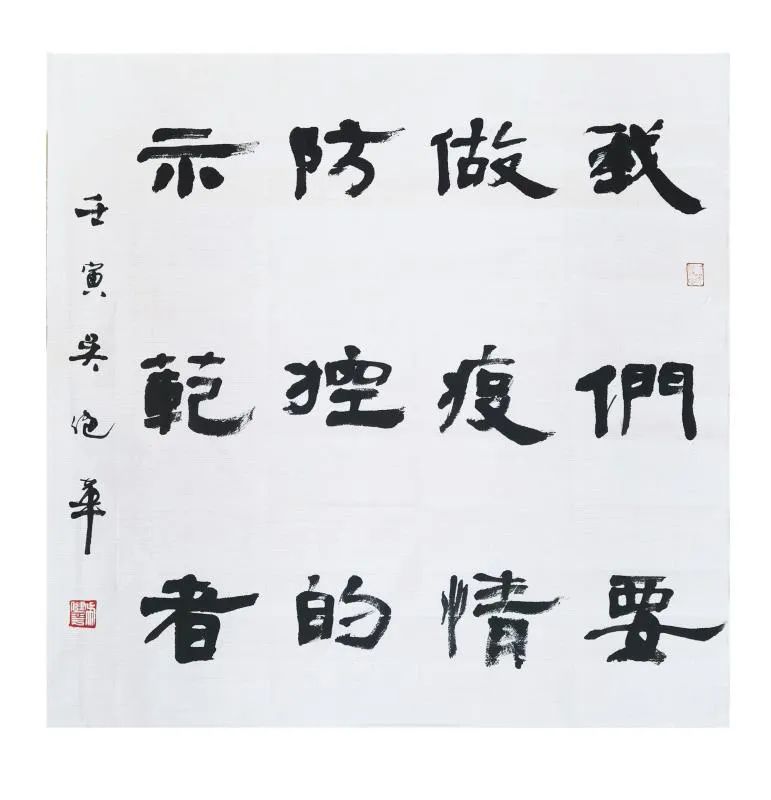 我們要
做疫情
防控的
示範者
壬寅吳華